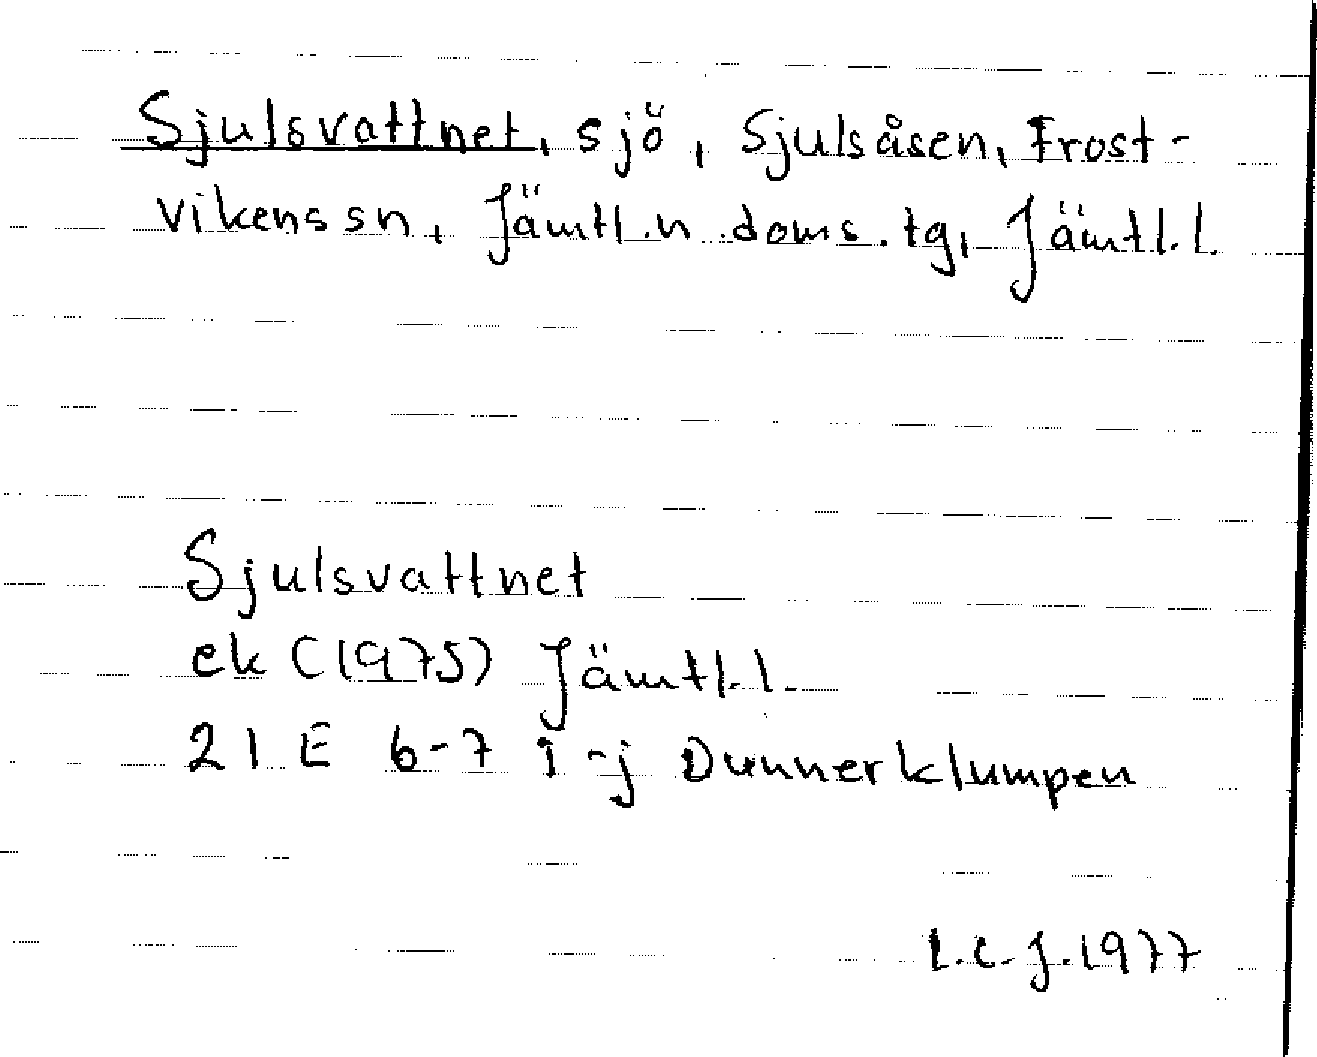 Sjulsvattnet, sjö, Sjulsåsen, Frost-
vikens sn, Jämtl. n. doms. tg, Jämtl. l.
Sjulsvattnet
ek C (1975) Jämtl. l.
21 E 6-7 i-j Dunnerklumpen
I.C.J. 1977